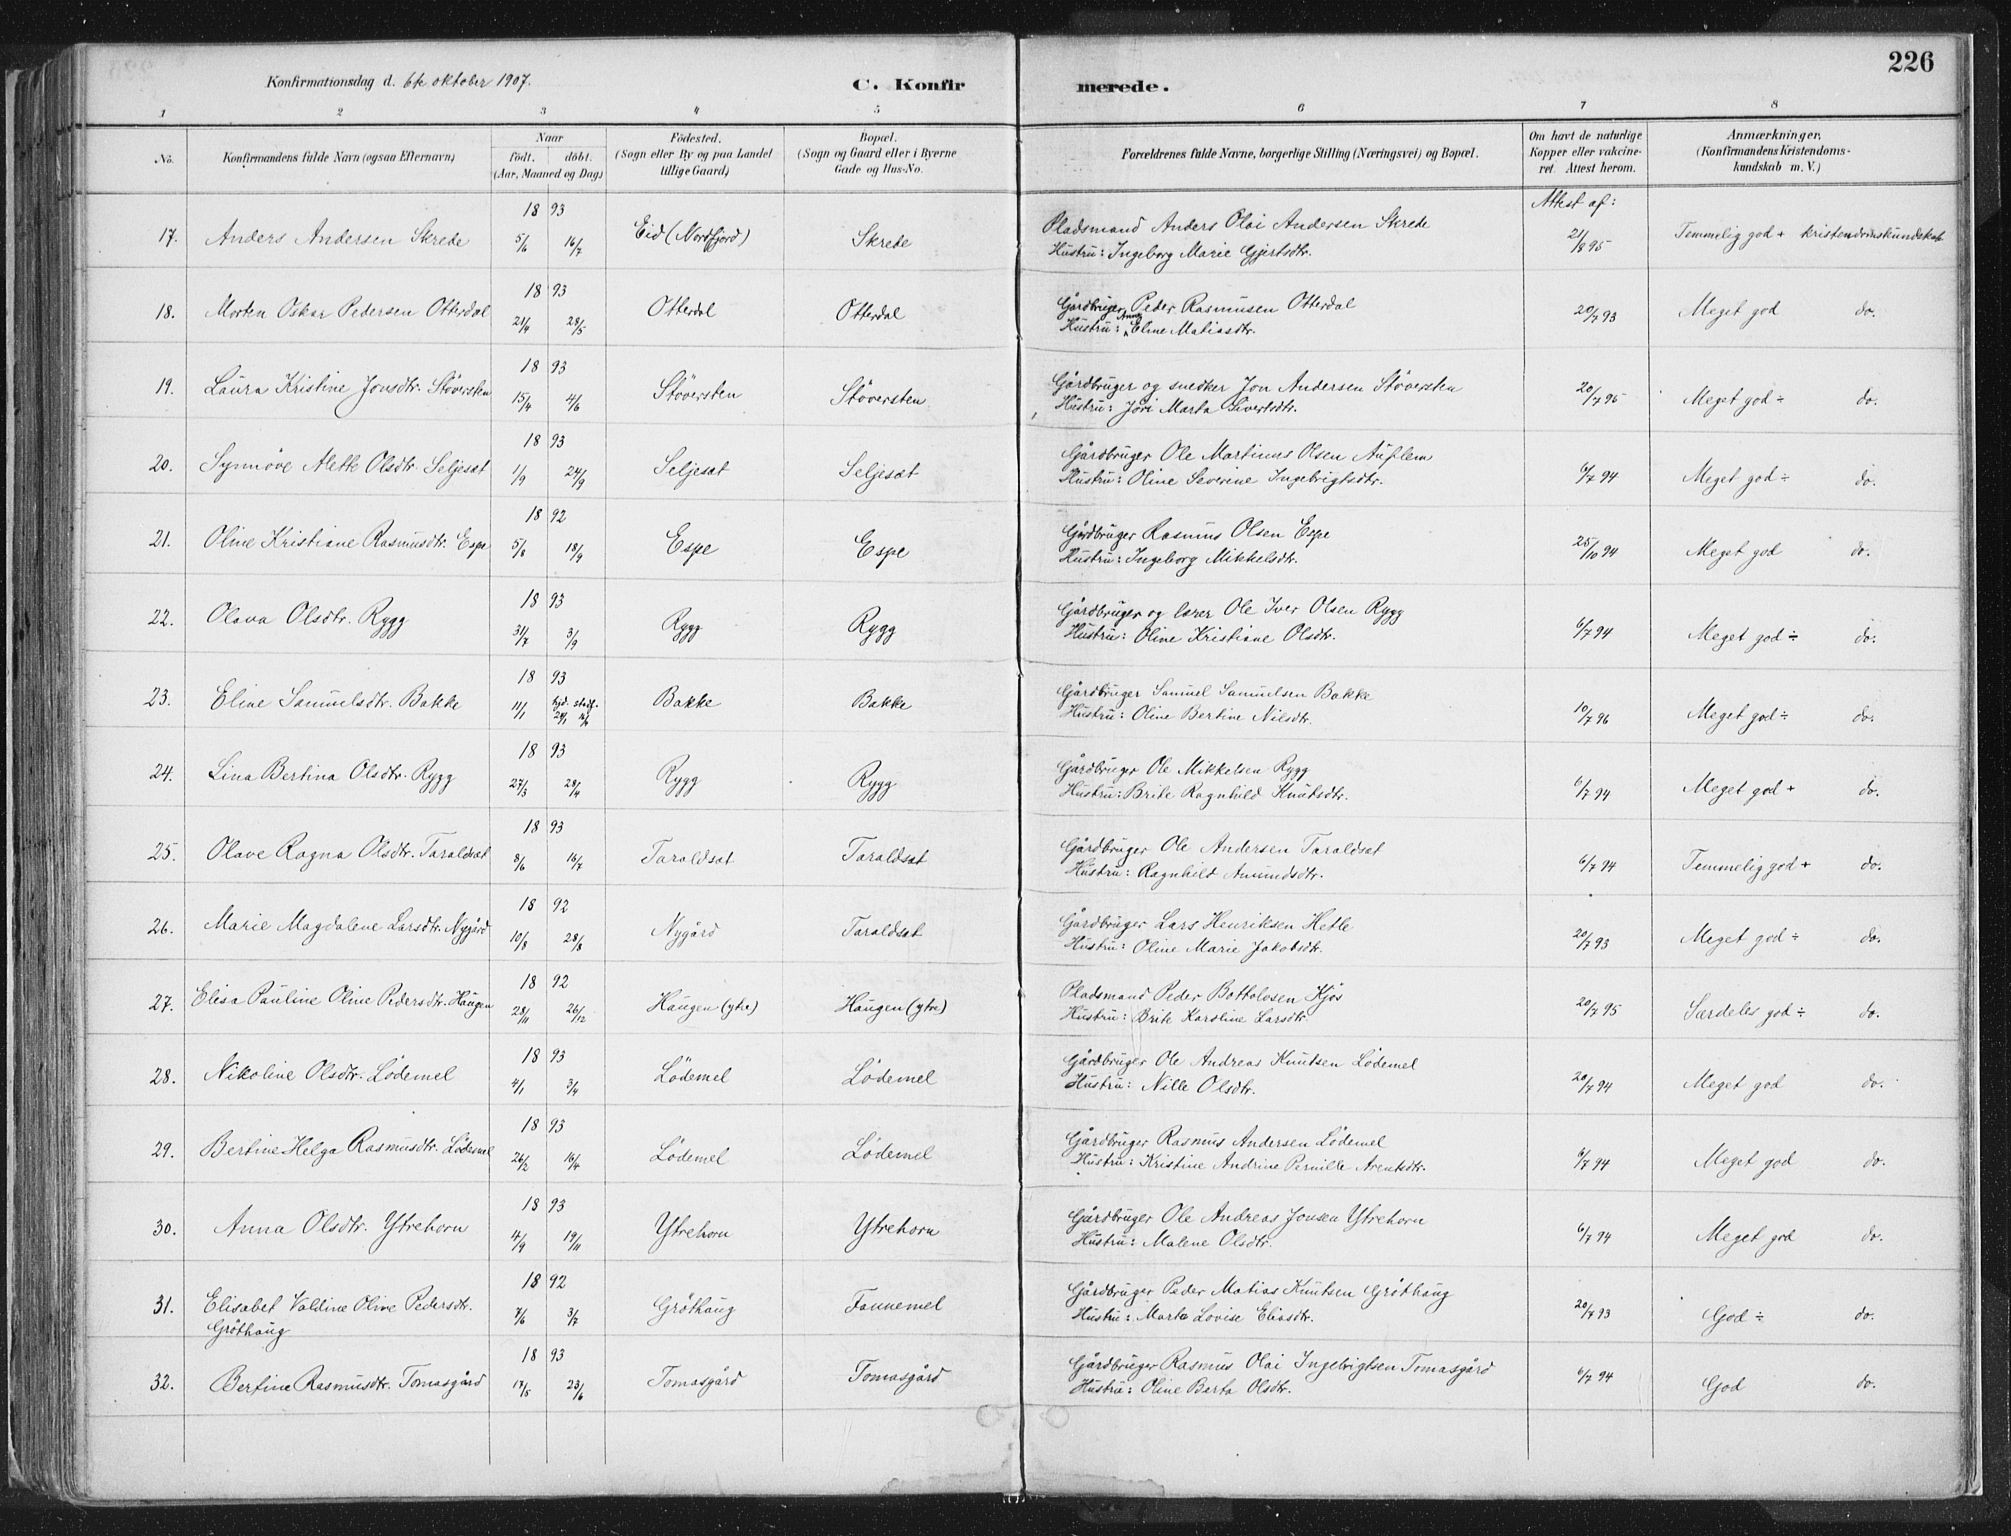 226
Konfirmationsdag d. 6te oktober 1907.
C. Konfirmerede.
1 2 3 4 5 6 7 8
No.
Konfirmandens fulde Navn (ogsaa Efternavn)
Naar
födt. döbt.
(Aar, Maaned og Dag)
Födested.
(Sogn eller By og paa Landet
tillige Gaard)
Bopæl.
(Sogn og Gaard eller i Byerne
Gade og Hus-No.
Forældrenes fulde Navne, borgerlige Stilling (Næringsvei) og Bopæl.
Om havt de naturlige
Kopper eller vakcine-
ret. Attest herom.
Anmærkninger.
(Konfirmandens Kristendoms-
kundskab m. V.)
Attest af:
17. Anders Andersen Skrede 1893 5/6 16/7 Eid (Nordfjord) Skrede
Pladsmand Anders Olai Andersen Skrede
Hustru: Ingeborg Marie Gjertsdtr. 21/8 95 Temmelig god + kristendomskundskab
18. Morten Oskar Pedersen Otterdal 1893 21/4 28/5 Otterdal Otterdal
Gårdbruger Peder Rasmusen Otterdal
Hustru: Anne Eline Matiasdtr. 20/7 93 Meget god do.
19. Laura Kristine Jonsdtr. Stöversten 1893 15/4 4/6 Stöversten Stöversten
Gårdbruger og snedker Jon Andersen Stöversten
Hustru: Jöri Marta Sivertsdtr. 20/7 95 Meget god ÷ do.
20. Synnöve Alette Olsdtr. Seljesæt 1893 1/9 24/9 Seljesæt Seljesæt
Gårdbruger Ole Martinus Olsen Auflem
Hustru: Oline Severine Ingebrigtsdtr. 6/7 94 Meget god ÷ do.
21. Oline Kristiane Rasmusdtr. Espe 1892 5/8 18/9 Espe Espe
Gårdbruger Rasmus Olsen Espe
Hustru: Ingeborg Mikkelsdtr. 25/10 94 Meget god do.
22. Olava Olsdtr. Rygg 1893 31/7 3/9 Rygg Rygg
Gårdbruger og lærer Ole Iver Olsen Rygg
Hustru: Oline Kristiane Olsdtr. 6/7 94 Meget god ÷ do.
23. Eline Samuelsdtr. Bakke 1893 11/1 hjd. stadf. Bakke Bakke
Gårdbruger Samuel Samuelsen Bakke
Hustru: Oline Bertine Nilsdtr. 10/7 96 Meget god ÷ do.
24. Lina Bertina Olsdtr. Rygg 1893 27/3 28/4 Rygg Rygg
Gårdbruger Ole Mikkelsen Rygg
Hustru: Brite Ragnhild Knutsdtr. 6/7 94 Meget god + do.
25. Olave Ragna Olsdtr. Taraldsæt 1893 8/6 16/7 Taraldsæt Taraldsæt
Gårdbruger Ole Andersen Taraldsæt
Hustru: Ragnhild Amundsdtr. 6/7 94 Temmelig god + do.
26. Marie Magdalene Larsdtr. Nygård 1892 10/8 28/8 Nygård Taraldsæt
Gårdbruger Lars Henriksen Hetle
Hustru: Oline Marie Jakobsdtr. 20/7 93 Meget god ÷ do.
27. Elisa Pauline Oline Pedersdtr. Haugen 1892 28/11 26/12 Haugen (ytre) Haugen (ytre)
Pladsmand Peder Bottolvsen Kjös
Hustru: Brite Karoline Larsdtr. 20/7 95 Særdeles god ÷ do.
28. Nikoline Olsdtr. Lödemel 1893 4/1 3/4 Lödemel Lödemel
Gårdbruger Ole Andreas Knutsen Lödemel
Hustru: Nille Olsdtr. 20/7 94 Meget god do.
29. Bertine Helga Rasmusdtr. Lödemel 1893 26/2 16/4 Lödemel Lödemel
Gårdbruger Rasmus Andersen Lödemel
Hustru: Kristine Andrine Pernille Arentsdtr. 6/7 94 Meget god do.
30. Anna Olsdtr. Ytrehorn 1893 4/9 19/11 Ytrehorn Ytrehorn
Gårdbruger Ole Andreas Jonsen Ytrehorn
Hustru: Malene Olsdtr. 6/7 94 Meget god do.
31. Elisabet Valdine Olive Pedersdtr. Gröthaug 1892 7/6 3/7 Gröthaug Fannemel
Gårdbruger Peder Matias Knutsen Gröthaug
Hustru: Marte Lovise Eliasdtr. 20/7 93 God ÷ do.
32. Bertine Rasmusdtr. Tomasgård 1893 17/5 23/6 Tomasgård Tomasgård
Gårdbruger Rasmus Olai Ingebrigtsen Tomasgård
Hustru: Oline Berta Olsdtr. 6/7 94 God do.